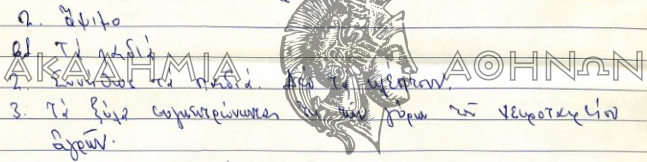 2. Ἄψιμο
α1 Τὰ παιδιὰ
ΑΚΑΔΗΜΙΑ ΑΘΗΝΩΝ
2. Συνήθως τὰ παιδιά. Δὲν τὰ κλέπτουν.
3. Τὰ ξύλα συγκεντρώνονται τὸν γύρω τοῦ νεκροταφείου
ἀγρῶν.